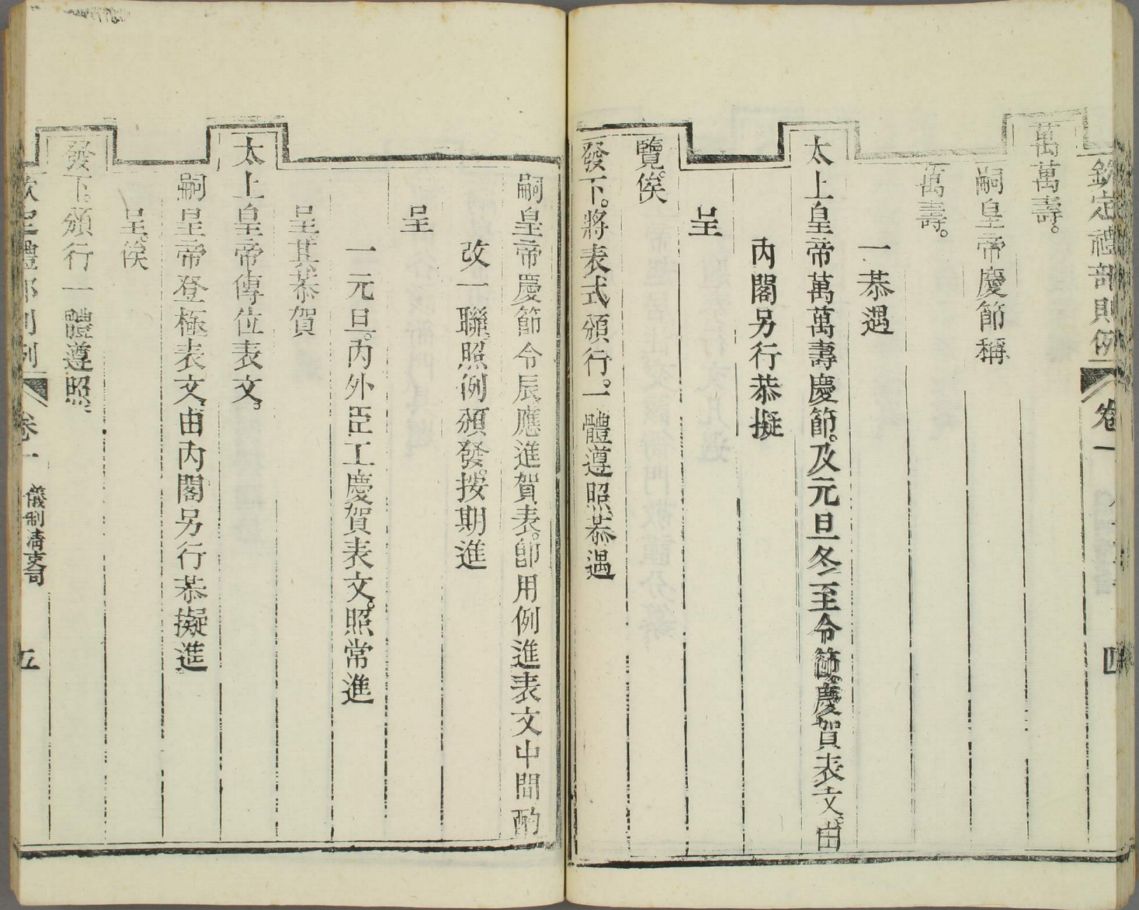 欽定禮部則例 卷一 四
萬萬壽。
嗣皇帝慶節稱
萬壽。
一恭遇
太上皇帝萬萬壽慶節。及元旦冬至令節。慶賀表文。由
內閣另行恭擬
呈
覽。俟
發下。將表式頒行。一體遵照。恭遇
嗣皇帝慶節令辰。應進賀表。卽用例進表文中間酌
改一聯。照例頒發。按期進
呈
一元旦。內外臣工慶賀表文。照常進
呈。其恭賀
太上皇帝傳位表文。
嗣皇帝登極表文。由內閣另行恭擬進
呈。俟
發下。頒行一體遵照。
欽定禮部則例 卷一 儀制清吏司 五